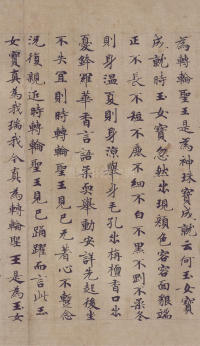 為轉輪聖王是為神珠寶成就云何玉女寶
成就時玉女寶忽然出現顏色容容面貌端
正不長不短不麤不細不白不黑不剛不柔冬
則身溫夏則身涼舉身毛孔出栴檀香口出
憂鉢羅華香言語柔耎舉動安詳先起後坐
不失宜則時轉輪聖王見已无著心不蹔念
況復親近時轉輪聖王見已踊躍而言此玉
女寶真為我瑞我今真為轉輪聖王是為玉女